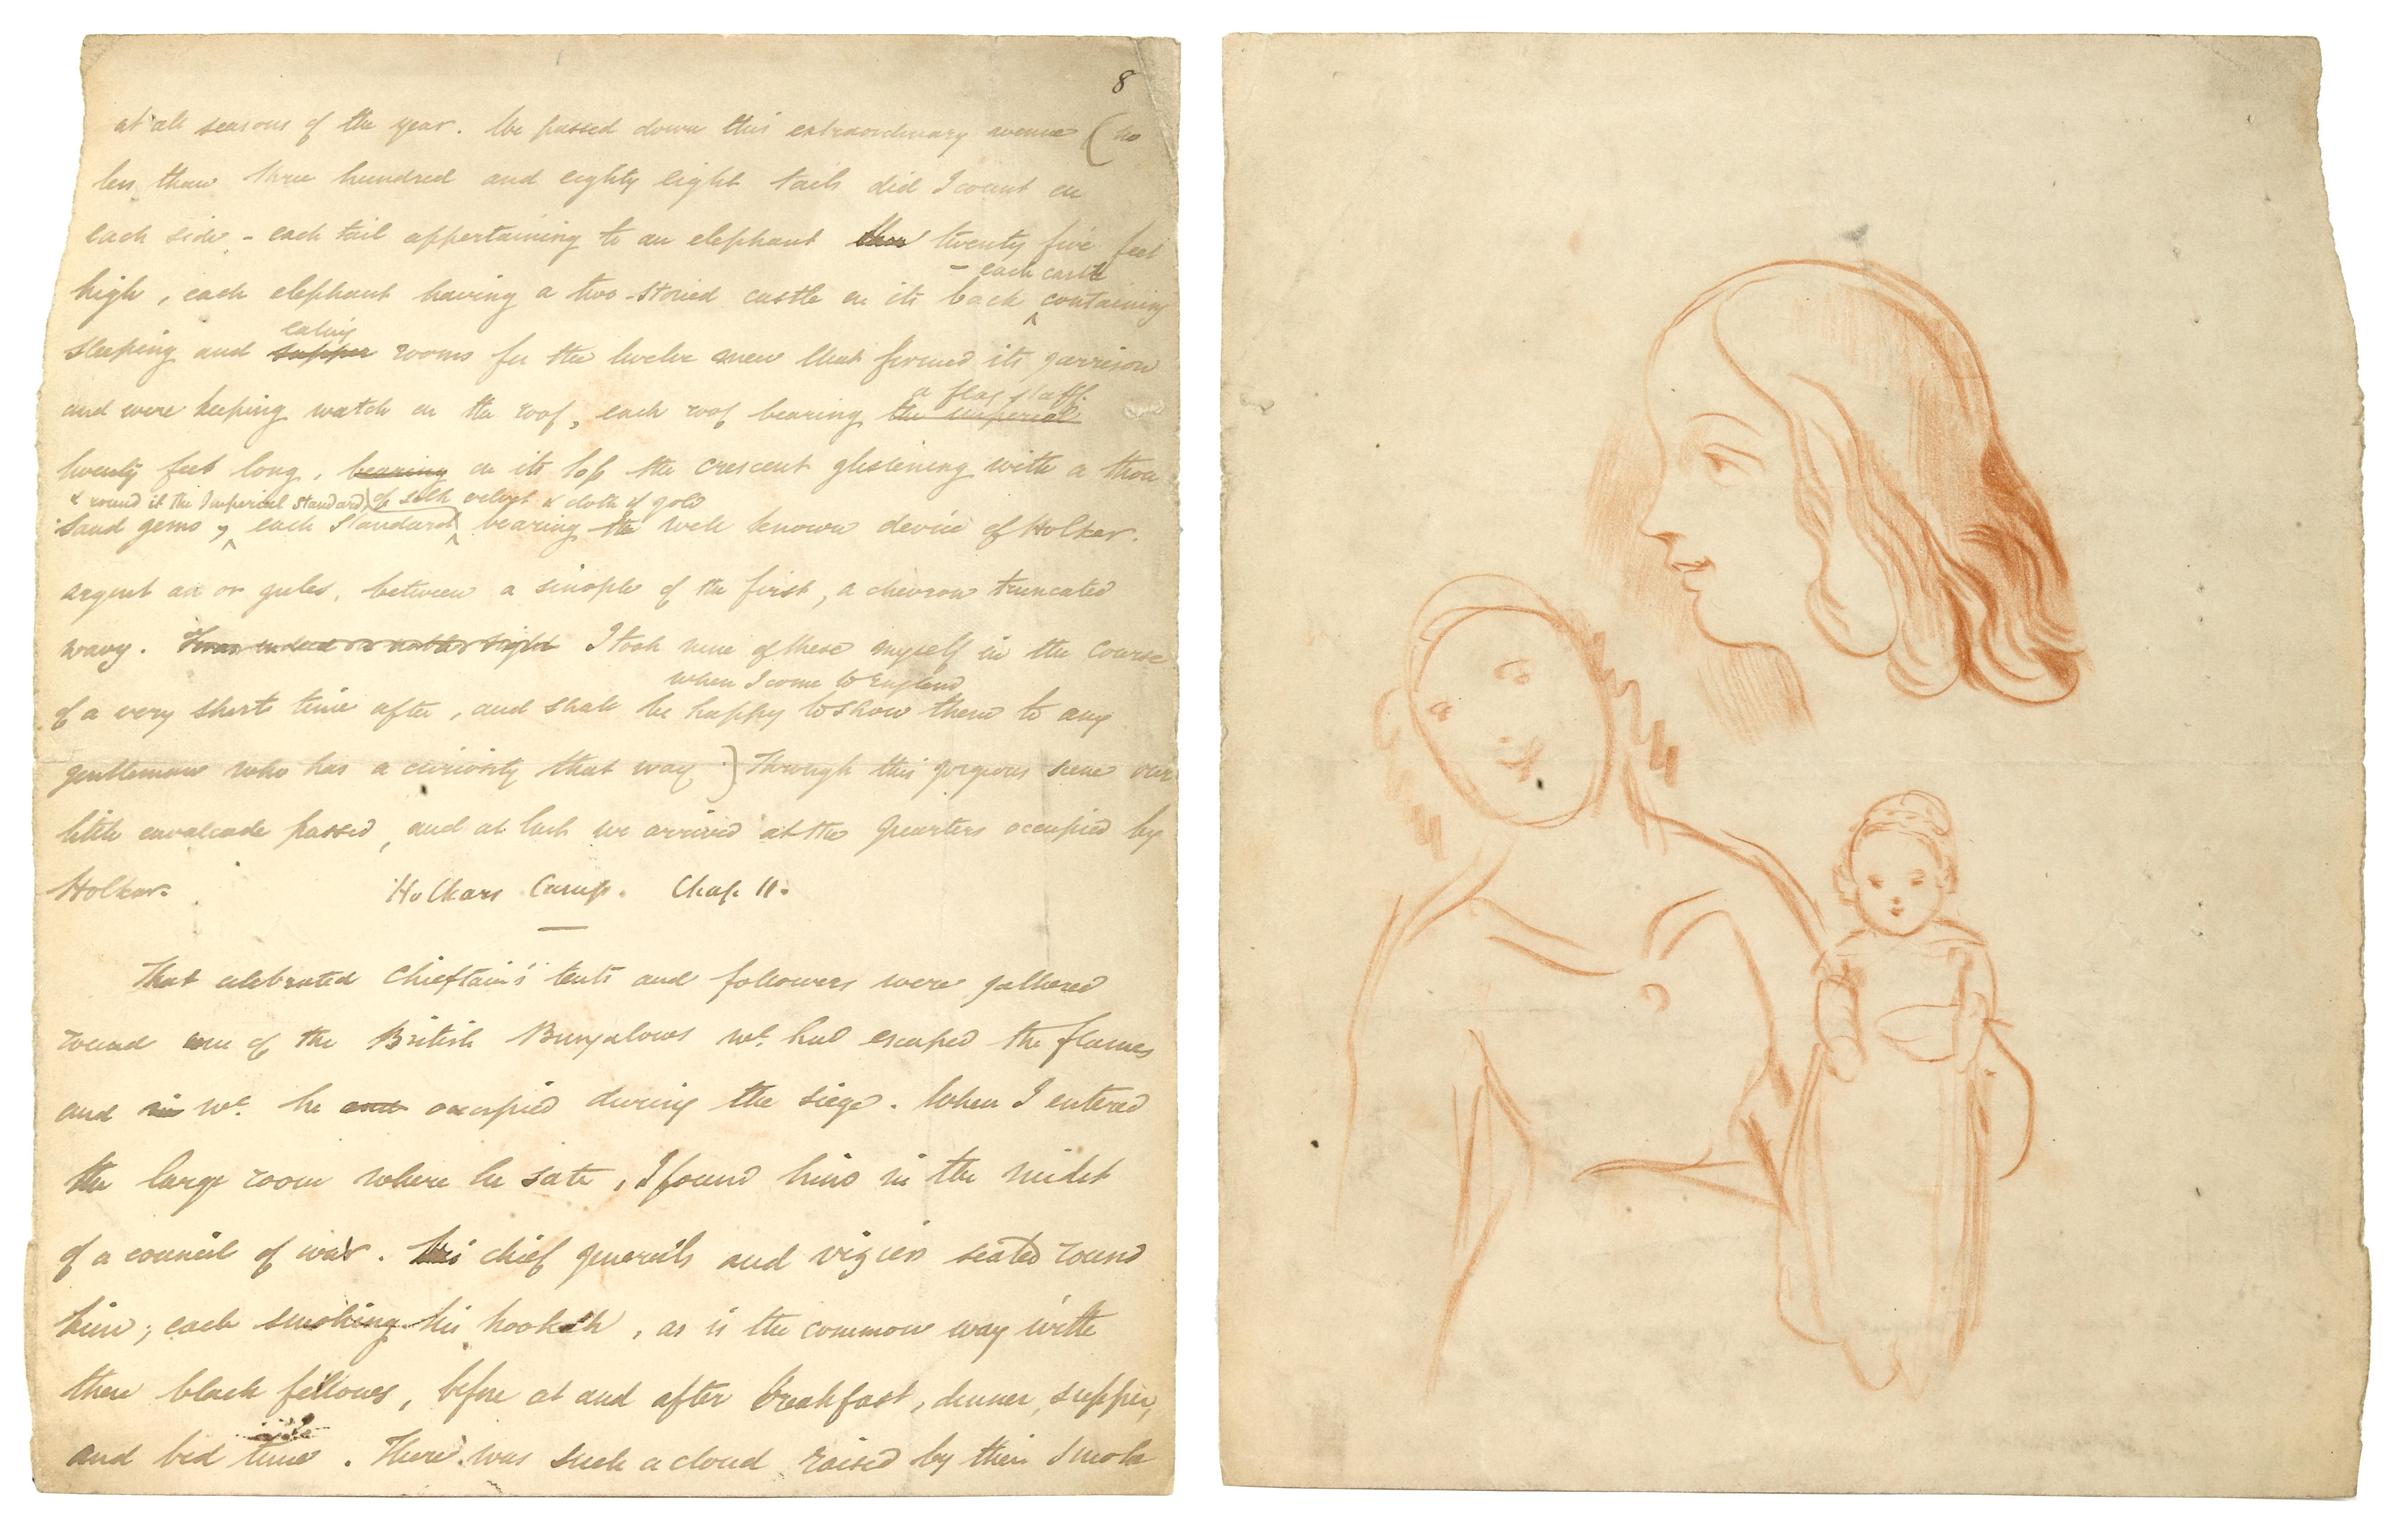 8
at all seasons of the year. We passed down this extraordinary avenue (no
less than three hundred and eighty eight tails did I count on
each side - each tail appertaining to an elephant twenty five feet
- each castle
high, each elephant having a two-storied castle on its back ^ containing
eating
sleeping and supper rooms for the twelve men that formed its garrison
a flag staff.
and were keeping watch on the roof, each roof bearing the imperial
twenty feet long, bearing on its top the crescent glistening with a thou
& round it the Imperial Standard, of silk velvet & cloth of gold
sand gems, ^ each standard ^ bearing the well known device of Holkar.
argent an or gules, between a sinople of the first, a chevron truncated
wavy. I took nine of these myself in the course
when I come to England
of a very short time after, and shall be happy to show them to any
gentleman who has a curiosity that way.) Through this gorgeous scene our
little cavalcade passed, and at last we arrived at the quarters occupied by
Holkar. Holkars Camp. Chap. 11.
That celebrated Chieftain's tents and followers were gathered
round one of the British Bungalows wh. had escaped the flames
and in wh. he occupied during the siege. When I entered
the large room where he sate, I found him in the midst
of a council of war. his chief generals and viziers seated round
him; each smoking his hookah, as is the common way with
these black fellows, before at and after breakfast, dinner, supper,
and bed time. There was such a cloud raised by their smoke